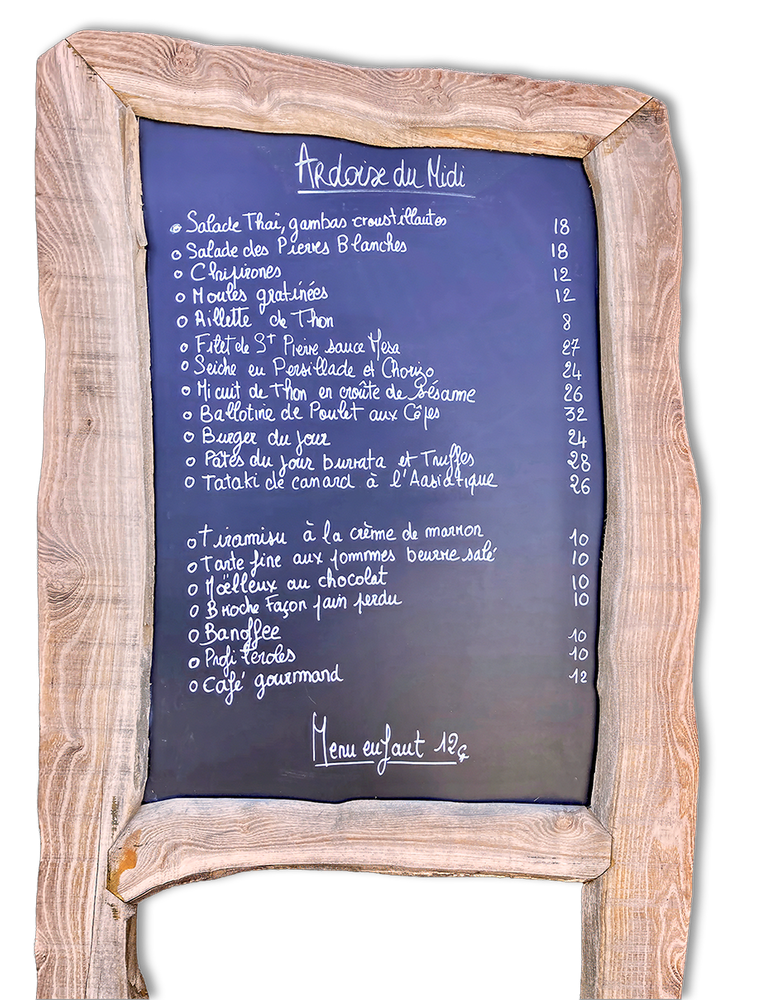 Ardoise du Midi
Salade Thaï, gambas croustillantes 18
Salade des Pierres Blanches 18
Chipirones 12
Moules gratinées 12
Rillette de Thon 8
Filet de St Pierre sauce Mesa 27
Seiche en Persillade et Chorizo 24
Mi cuit de Thon en croûte de sésame 26
Ballotine de Poulet aux Cêpes 32
Burger du jour 24
Pâtes du jour burrata et Truffes 28
Tataki de canard à l'Aasiatique 26
Tiramisu à la crème de marron 10
Tarte fine aux pommmes beurre salé 10
Möelleux au chocolat 10
Brioche Façon pain perdu 10
Banoffee 10
Profiteroles 10
Café gourmand 12
Menu enfant 12€